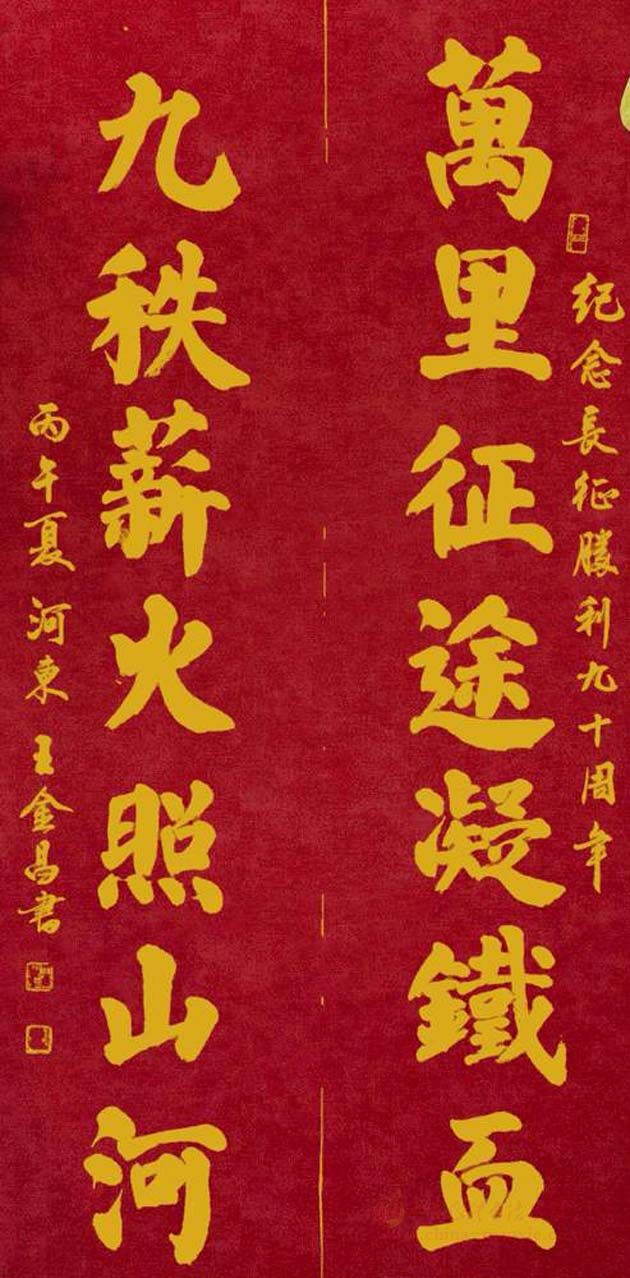 纪念長征勝利九十周年
萬里征途凝鐵血
九秩薪火照山河
丙午夏 河東 王金昌書